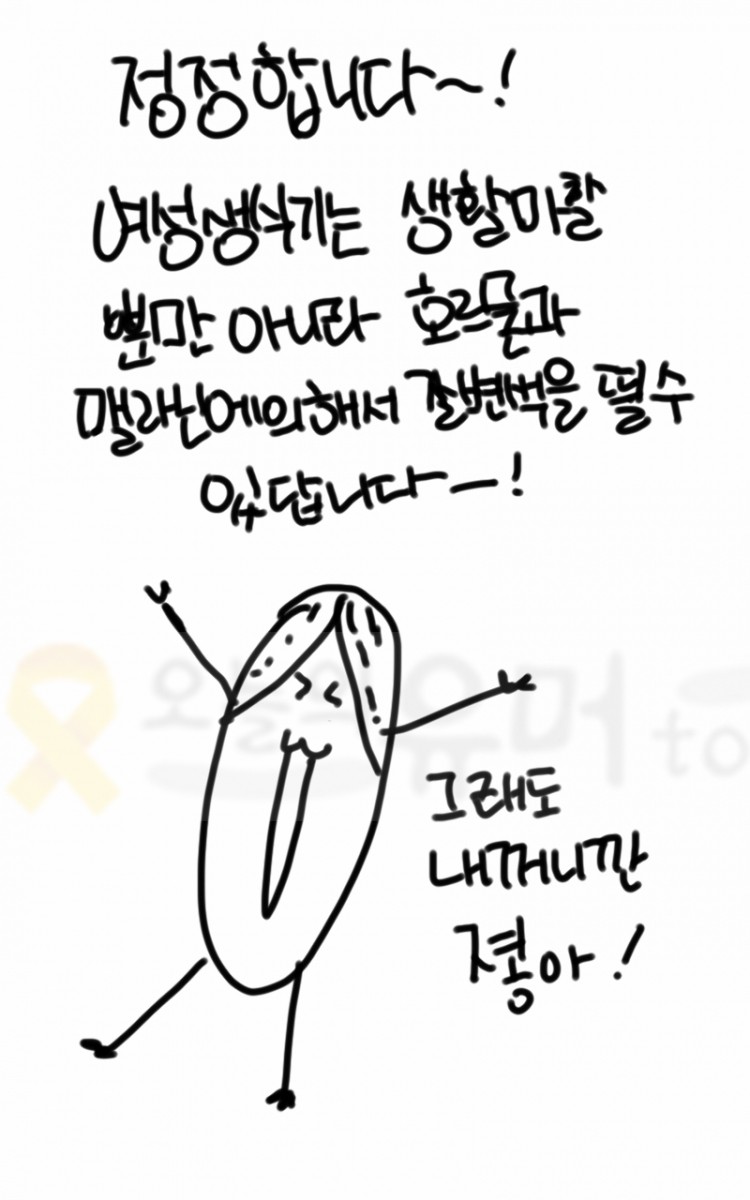 정정합니다~!
여성생식기는 생활마찰
뿐만 아니라 호르몬과
맬라닌에의해서 갈변색을 띌수
있답니다~!
오늘의유머 to
그래도
내꺼니깐
죻아!